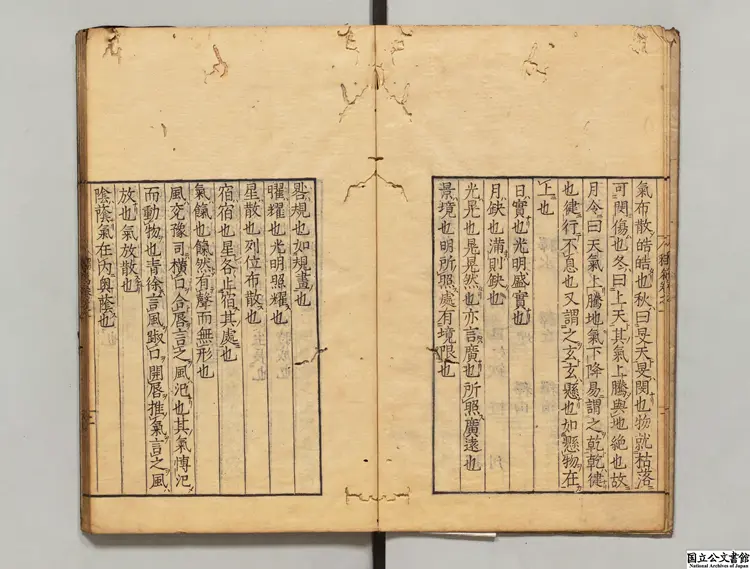 氣布散皓皓也秋曰旻天旻閔也物就枯落
可閔傷也冬曰上天其氣上騰與地絶也故
月令曰天氣上騰地氣下降易謂之乾乾健
也健行不息也又謂之玄玄懸也如懸物在
上也
日實也光明盛實也
月缺也滿則缺也
光晃也晃晃然也亦言廣也所照廣遠也
景境也明所照處有境限也
晷規也如規畫也
曜耀也光明照耀也
星散也列位布散也
宿宿也星各止宿其處也
氣餼也餼然有聲而無形也
風兗豫司橫口合唇言之風氾也其氣博氾
而動物也青徐言風踧口開唇推氣言之風
放也氣放散也
陰蔭也氣在內奧蔭也
国立公文書館
National Archives of Japan